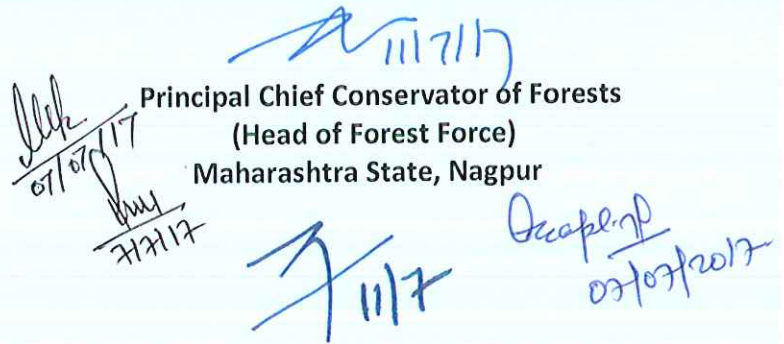 11/7/17
Principal Chief Conservator of Forests
(Head of Forest Force)
Maharashtra State, Nagpur
07/07/17
7/7/17
11/7
07/07/2017